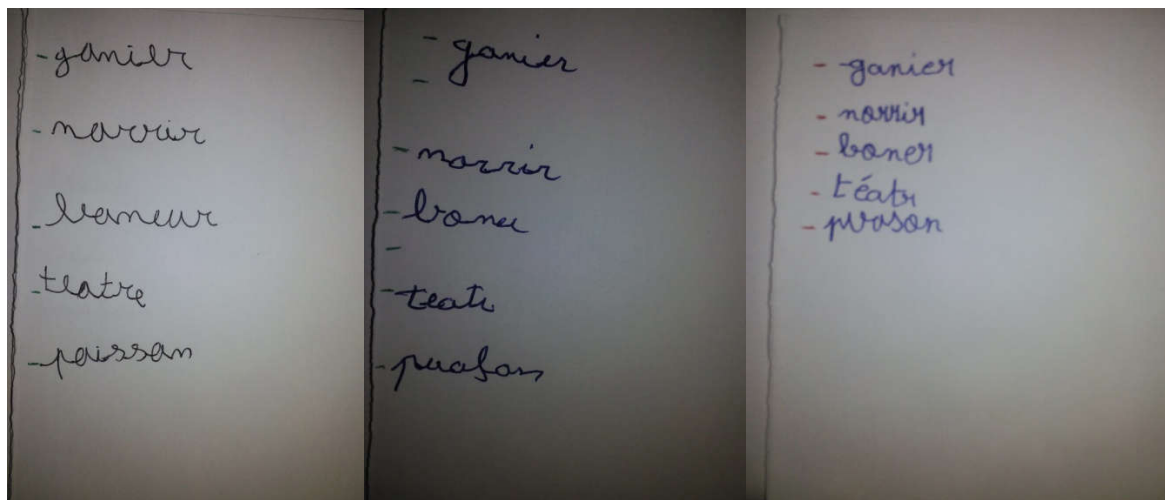 - ganier
- norrir
- boneur
- teatre
- poisson
- ganier
-
- norrir
- bone
-
- teatr
- puason
- ganier
- norrir
- boner
- téatr
- pvoson